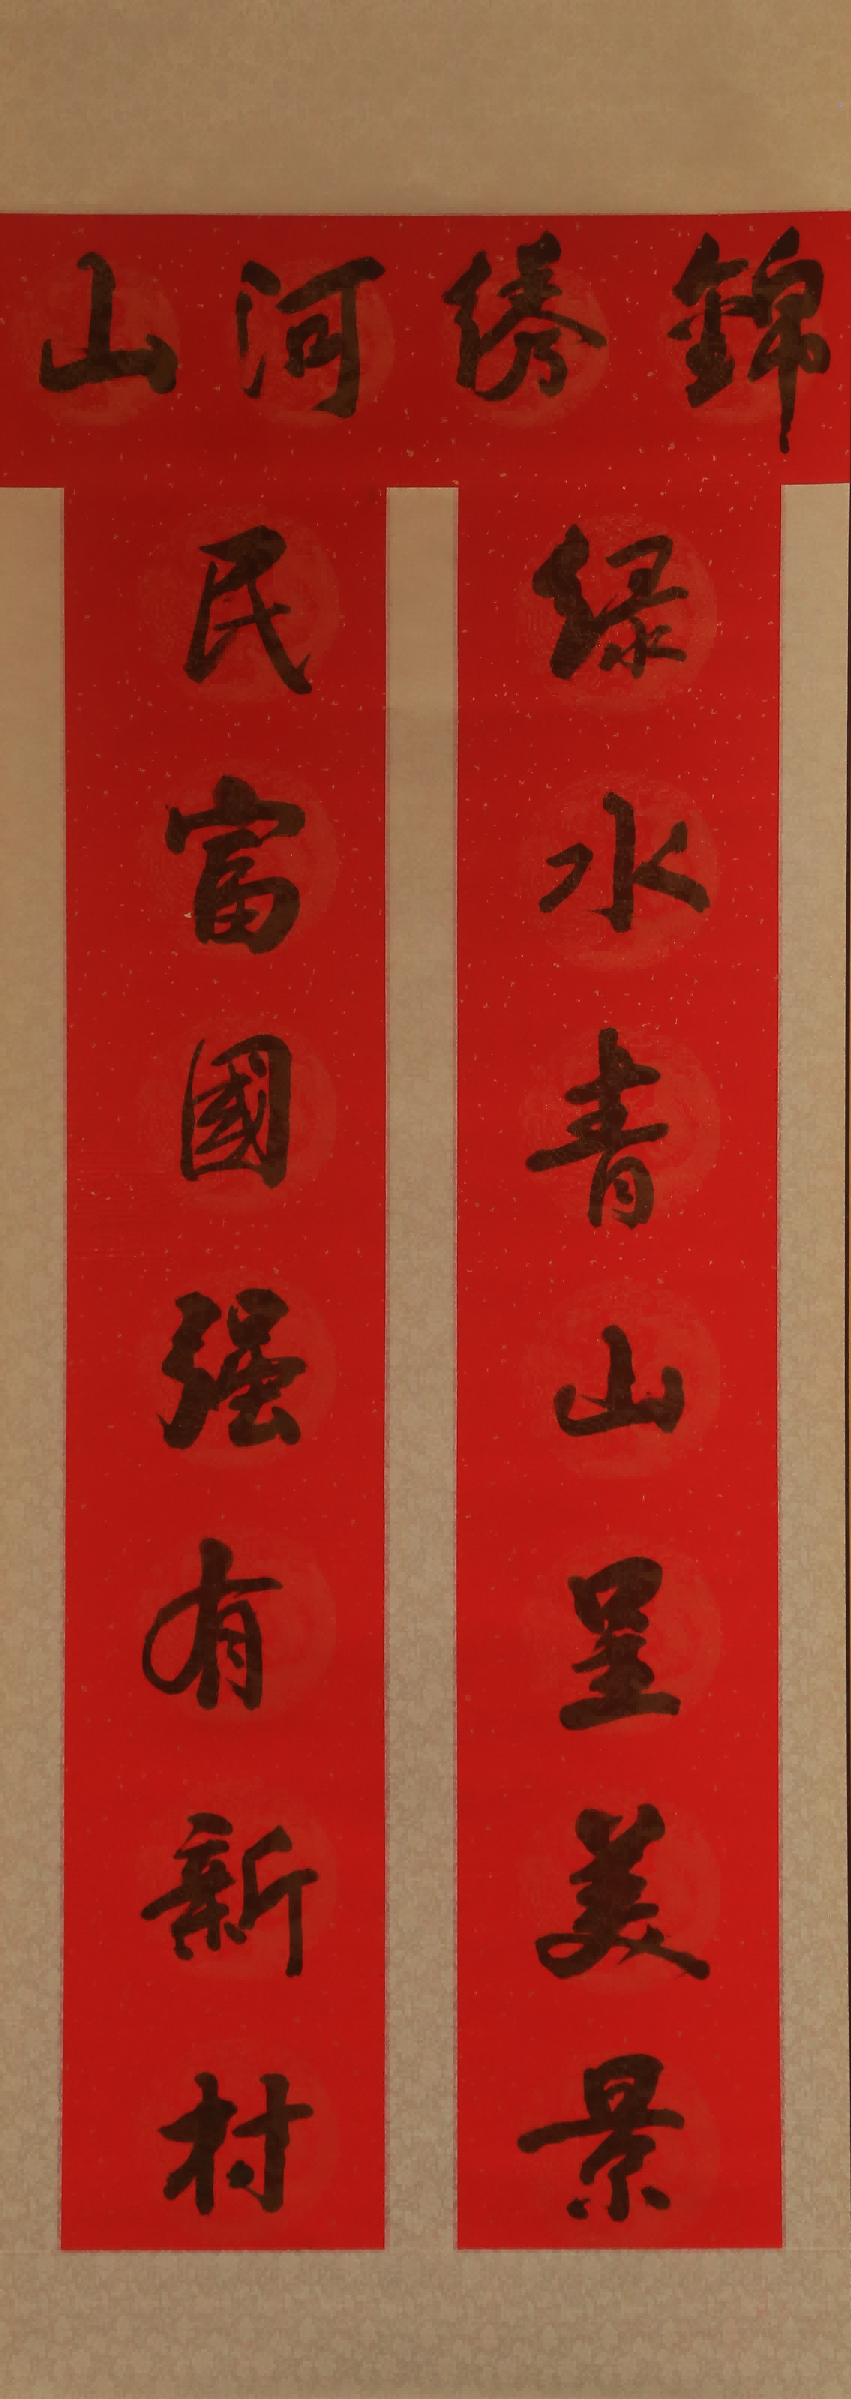 錦绣河山
绿水青山呈美景
民富國强有新村